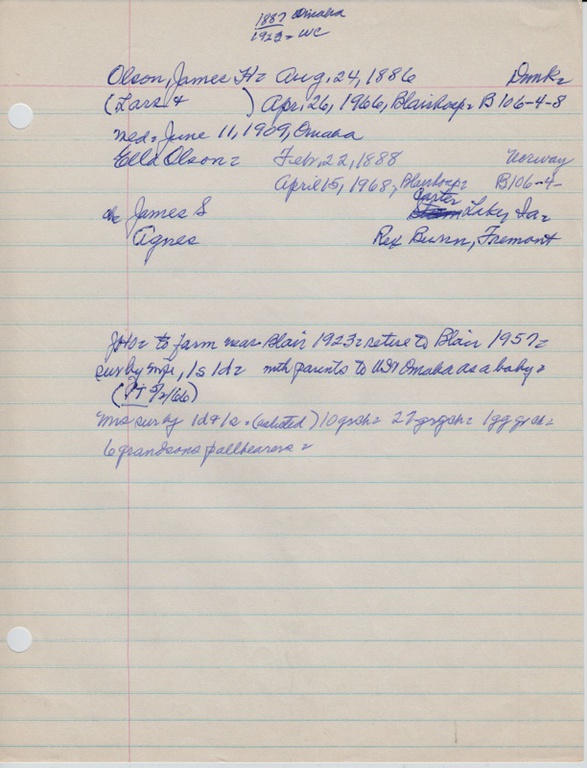 1887 Omaha
1923 = WC
Olson, James H = Aug, 24, 1886 Dnmk =
(Lars & ) Apr, 26, 1966, Blairhosp = B 106-4-8
med = June 11, 1909, Omaha
Ella Olson = Feb, 22, 1888 Norway
April 15, 1968, Blairhosp = B106-4-
Carter
ch James S Lake, Ia =
Agnes Rex Bunn, Fremont
JHO = to farm near Blair 1923 = retire to Blair 1957 =
sur by wife, 1s 1d = with parents to US Omaha as a baby =
(PT 5/2/66)
Mrs sur by 1d & 1s = (as listed) 10 grch = 27 grgrch = 1 gg grch =
6 grandsons pallbearers =